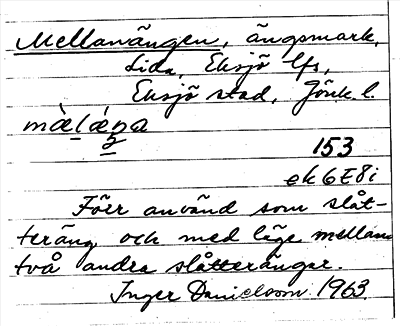 Mellanängen, ängsmark,
Lida, Eksjö lfs,
Eksjö stad, Jönk. l.
mæ̀lǽŋa
153
ek 6E8i
Förr använd som slåt-
teräng och med läge mellan
två andra slåtterängar.
Inger Danielsson 1963